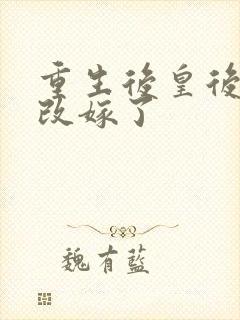 重生後皇後
改嫁了
魏有藍